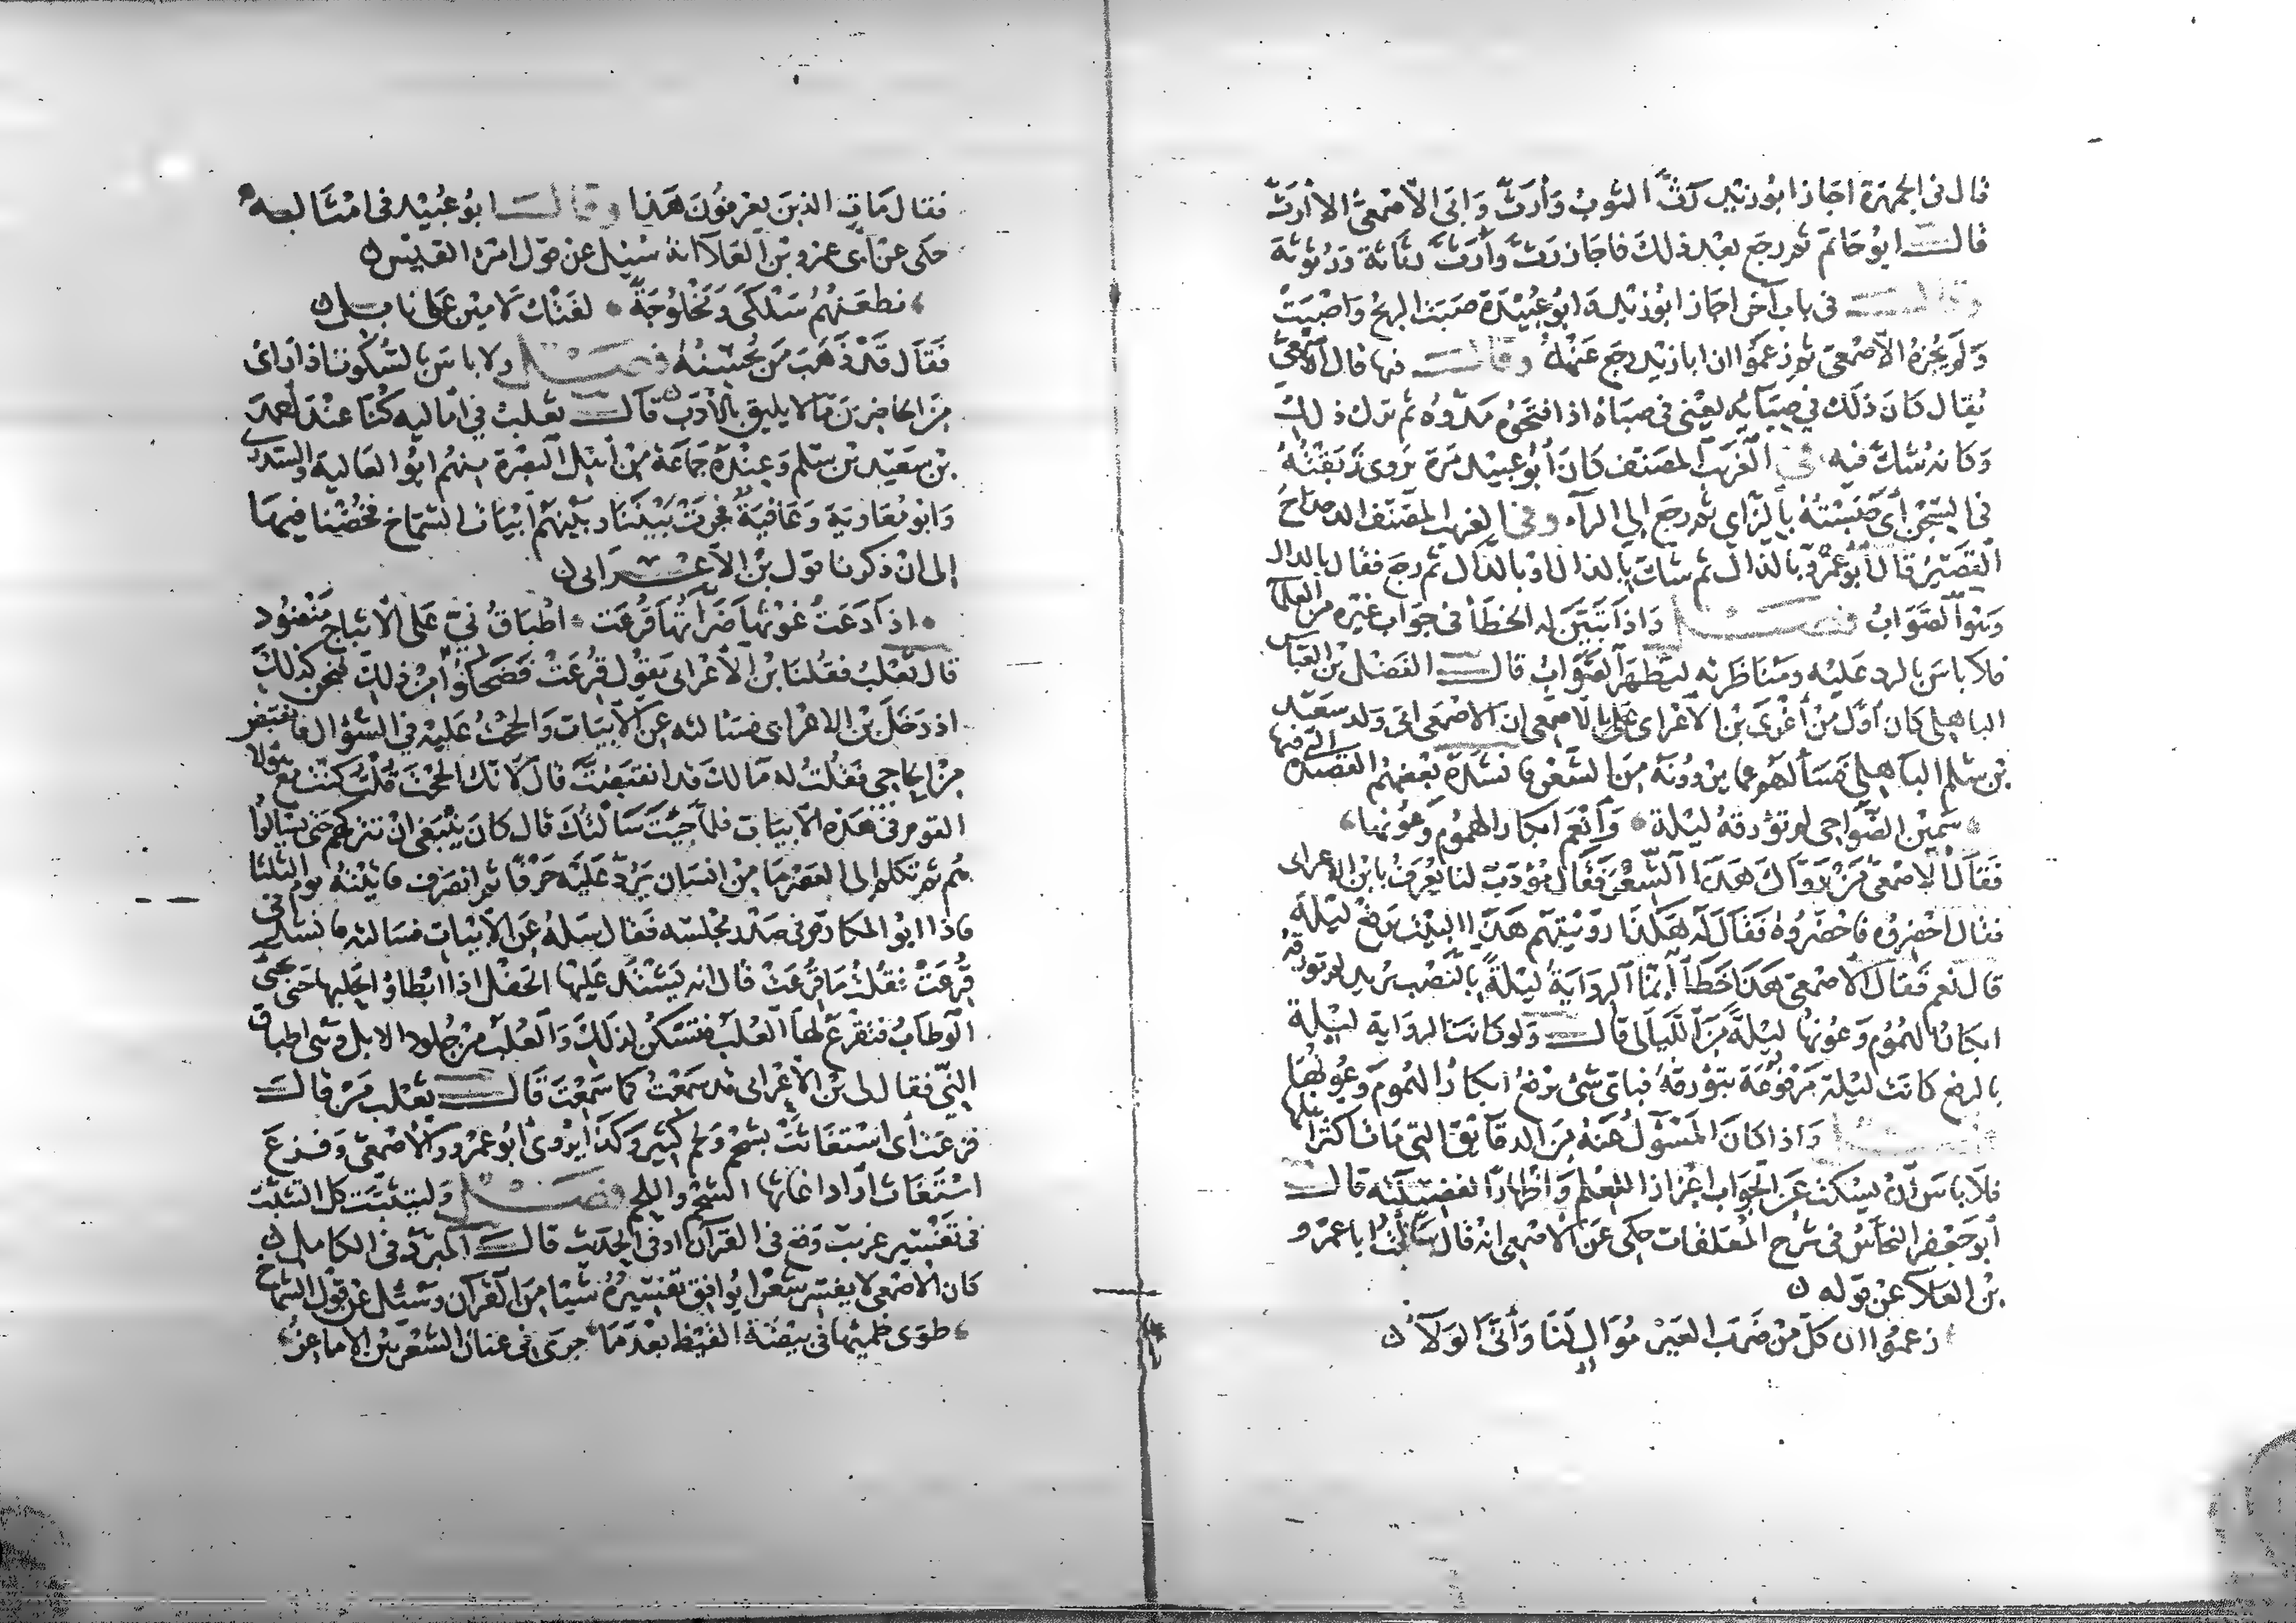 قال في الجمهرة اجاز ابو زيد رث الثوب وأرث وابى الاصمعي الا أرث
قال ابو حاتم ثم رجع بعد ذلك فاجاز رث وأرث رثاثة ورثوثة
وقال في باب آخر اجاز ابو زيد وابو عبيدة صبت الريح واصبت
ولم يجزه الاصمعي ثم زعموا ان ابا زيد رجع عنه وقال فيها قال الاصمعي
يقال كان ذلك في صبائه يعني في صباه اذا فتحوه مدوه ثم ترك ذلك
وكانه شك فيه في الغريب المصنف كان أبو عبيد مرة يروى زبقته
في السجن أى حبسته بالزاي ثم رجع الى الراء وفي الغريب المصنف الدحداح
القصير قال أبو عمرو بالذال ثم شك بالذال او بالدال ثم رجع فقال بالدال
وهو الصواب فصل واذا تبين له الخطأ في جواب غيره من العلما
فلا باس بالرد عليه ومناظرته ليظهر الصواب قال الفضل بن العباس
الباهلي كان أول من أغرى بن الاعرابى بالاصمعي ان الاصمعي اتى ولد سعيد
بن سلم الباهلي فسألهم عما يروونه من الشعر فانشده بعضهم القصيدة التي فيها
سمين الضواحي لم تؤرقه ليلة وأنعم ابكار الهموم وعونها
فقال الاصمعي من رواك هذا الشعر فقال مؤدب لنا يعرف بابن الاعرابى
فقال احضروه فاحضروه فقال له هكذا رويتهم هذا البيت برفع ليلة
قال نعم فقال الاصمعي هذا خطأ انما الرواية ليلة بالنصب يريد لم تؤرقه
ابكار الهموم وعونها ليلة من الليالى قال ولو كانت الرواية ليلة
بالرفع كانت ليلة مرفوعة بتؤرقه فباى شى ترفع ابكار الهموم وعونها
فصل واذا كان المسؤل عنه من الدقائق التي مات اكثر اهلها
فلا باس أن يسكت عن الجواب اعزازا للعلم واظهارا لفضيلته قال
أبو جعفر النحاس في شرح المعلقات حكى عن الاصمعى انه قال سألت ابا عمرو
بن العلا عن قوله ن
زعموا ان كل من ضرب العير موال لنا وأنى الولآ ن
فقال مات الذين يعرفون هذا وقال ابو عبيد في امثاله
حكى عن أبى عمرو بن العلا انه سئل عن قول امرء القيس ن
نطعنهم سلكى ومخلوجة لفتك لامين على نابل ن
فقال قد ذهب من يحسنه فصل ولا باس بالسكوت اذا رأى
من الحاضرين ما لا يليق بالأدب قال ثعلب في اماليه كنا عند أحمد
بن سعيد بن سلم وعنده جماعة من أهل البصرة منهم ابو العالية والسدرى
وابو معاوية وعافية فجرت بيننا وبينهم أبيات الشماخ فخضنا فيها
إلى ان ذكرنا قول بن الاعرابى ن
اذا دعت غوثها ضراتها فزعت اطباق ني على الاثباج منضود
قال ثعلب فقلنا بن الأعرابى يقول قرعت فضحكوا من ذلك فنحن كذلك
اذ دخل بن الاعرابى فسالته عن الابيات والححت عليه في السؤال فانقبض
من الحاجي فقلت له مالك قد انقبضت قال لانك الححت قلت كنت مع هؤلا
القوم في هذه الابيات فلما جيت سألتك قال كان ينبغى ان تتركهم حتى يسألوا
هم ثم تكلم الى العصر ما من انسان يرد عليه حرفا ثم انصرف فاتيته يوم الثلثا
فاذا ابو المكارم في صدر مجلسه فقال سله عن الابيات فسالته فانشدني
قرعت فقلت ما قرعت قال انه يشتد عليها الحفل اذا ابطاؤ احلبها حتى تجئ
الوطاب فتقرع لها العلب فتسكن لذلك والعلب من جلود الابل وهى اطباق
النى فقال لى بن الأعرابى قد سمعت كما سمعت قال ثعلب من قال
فزعت أى استغاثت بشحم ولحم كثير وكذا يروى أبو عمرو والأصمعى وفزع
استغاث أراد اغاثها الشحم واللحم فصل وليتثبت كل التثبت
في تفسير غريب وقع في القرآن او في الحديث قال المبرد في الكامل ن
كان الاصمعى لا يفسر شعرا يوافق تفسيره شيا من القرآن وسئل عن قول الشماخ
طوى ظمئها في بيضة القيظ بعد ما جرى في عنان الشعريين الاماعز